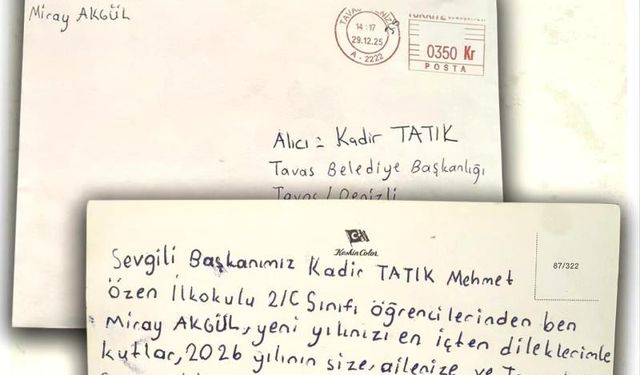 Miray AKGÜL
14:17
29.12.25
A-2222
0350 Kr
POSTA
Alıcı = Kadir TATIK
Tavas Belediye Başkanlığı
Tavas / Denizli
KeskinColor
87/322
Sevgili Başkanımız Kadir TATIK Mehmet
Özen İlkokulu 2/C Sınıfı öğrencilerinden ben
Miray AKGÜL, yeni yılınızı en içten dileklerimle
kutlar, 2026 yılının size, ailenize ve